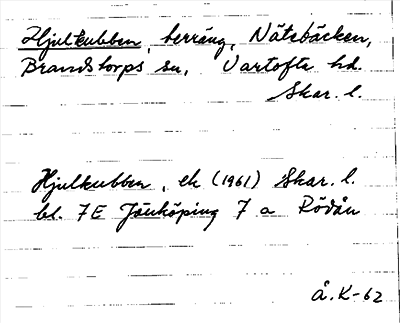 Hjulkubben, terräng, Nätebäcken,
Brandstorps sn, Vartofta hd.
Skar. l.
Hjulkubben, ek (1961) Skar. l.
bl. 7E Jönköping 7 a Rödån
Å. K-62